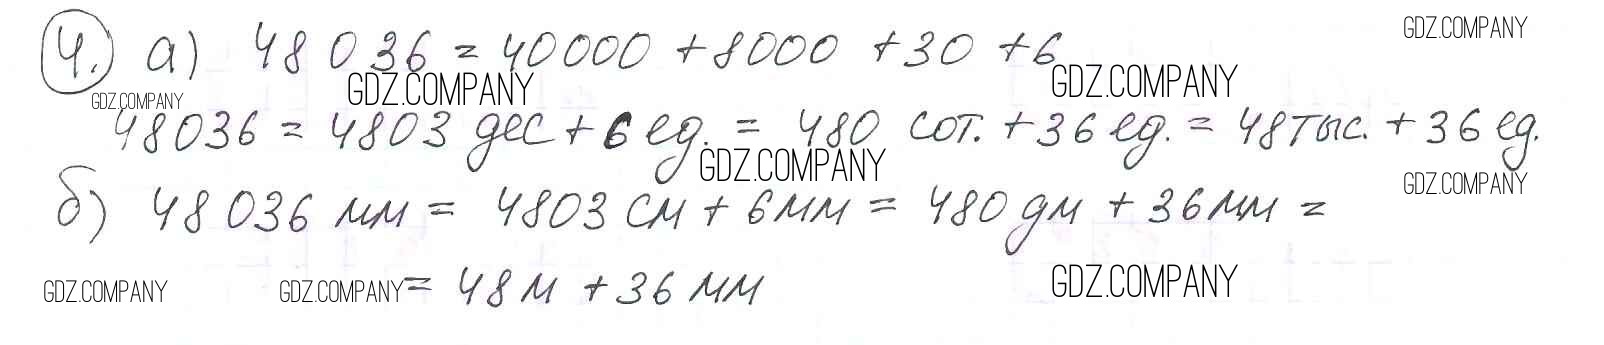 GDZ.COMPANY
4. а) 48 036 = 40000 + 8000 + 30 + 6
GDZ.COMPANY GDZ.COMPANY GDZ.COMPANY
48036 = 4803 дес + 6 ед. = 480 сот. + 36 ед. = 48 тыс. + 36 ед.
GDZ.COMPANY GDZ.COMPANY
б) 48 036 мм = 4803 см + 6 мм = 480 дм + 36 мм =
GDZ.COMPANY GDZ.COMPANY GDZ.COMPANY
= 48 м + 36 мм